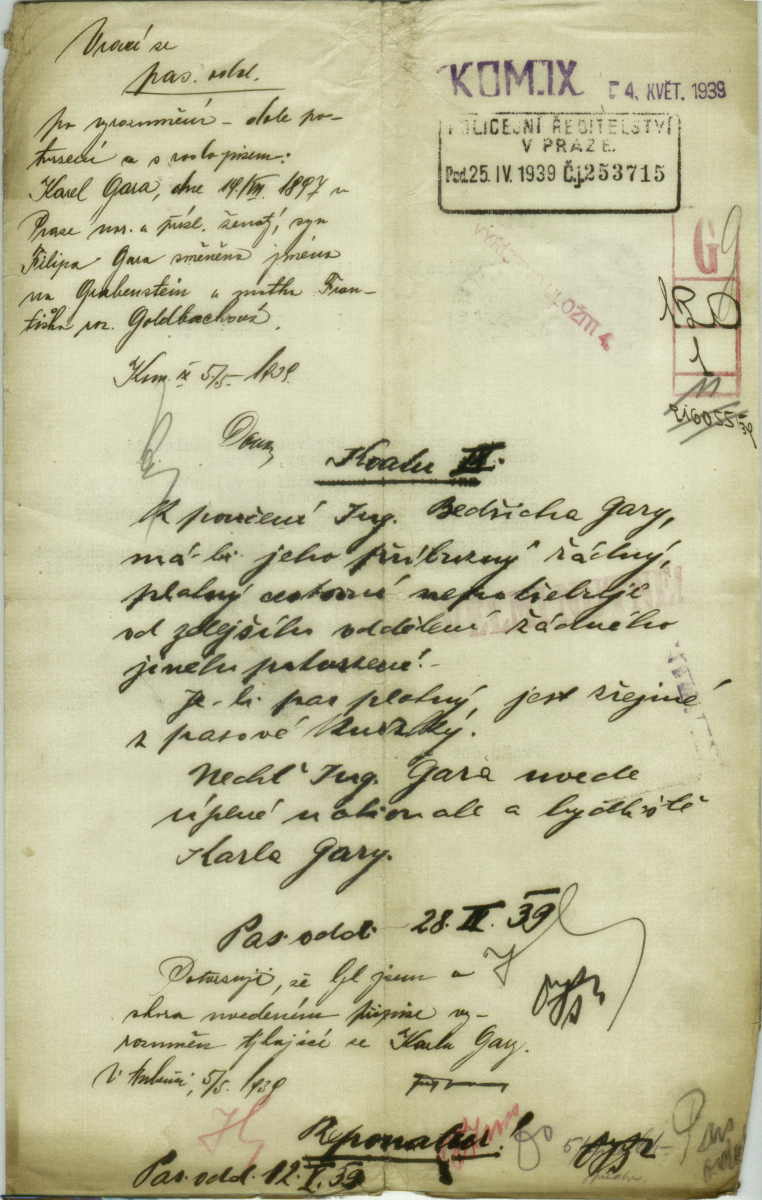 Vrací se
pas. odd.
po vyrozumění – dole po-
tvrzení a s
Karel Gara, dne 19./VII. 1897 v
Praze nar. a přísl. ženatý, syn
Filipa Gara jména
na Grabenstein a matka Fran-
tiška roz. Goldbachová.
Kom. IX 5/5 – 1939.
KOM. IX
4. KVĚT. 1939
POLICEJNÍ ŘEDITELSTVÍ
V PRAZE.
Pod. 25. IV. 1939 Č.j. 253715
G 9
120
1
K poučení Ing. Bedřicha Gary,
má-li jeho příbuzný řádný,
platný cestovní nepotřebuje
od zdejšího oddělení žádného
jiného potvrzení.–
Je-li pas platný, jest zřejmé
z pasové knížky.
Nechť Ing. Gara uvede
úplné nationale a bydliště
Karla Gary.
Pas. odd. 28. IV. 39
Potvrzuji, že byl jsem o
shora uvedeném přípise vy-
rozuměn týkající se Karla Gary.
5/5. 1939
Pas. odd. 12. V. 39